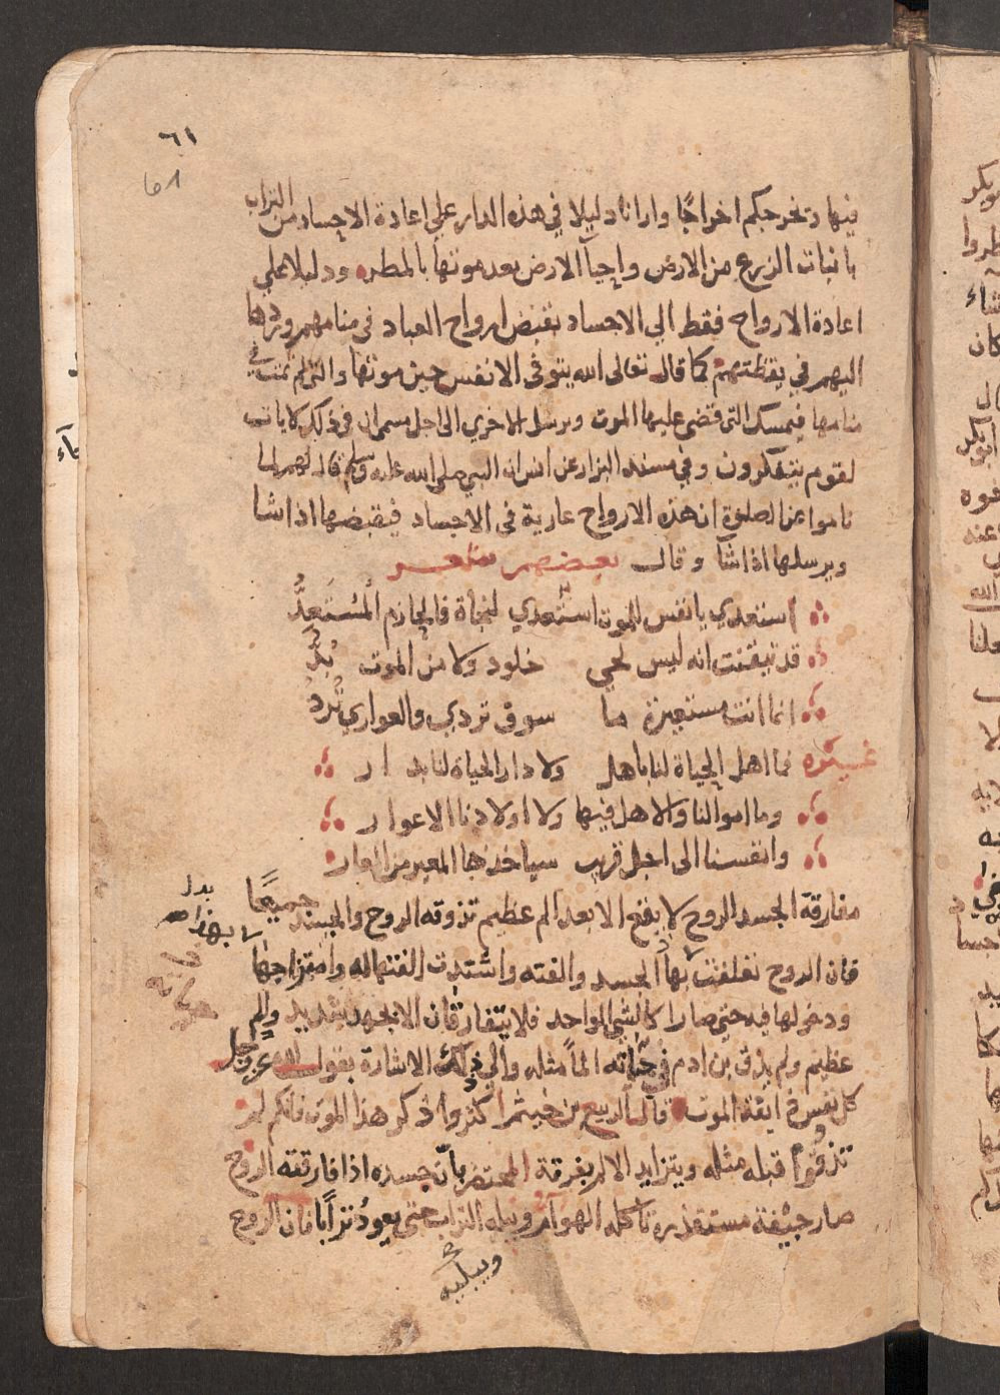 ٦١
فيها وتخرجكم اخراجًا وارانا دليلا في هذه الدار علي اعادة الاجساد من التراب
بانبات الزرع من الارض واحيآ الارض بعد موتها بالمطر ودليلا علي
اعادة الارواح فقط الي الاجساد بقبض ارواح العباد في منامهم وردها
اليهم في يقظتهم كما قال تعالى الله يتوفى الانفس حين موتها والتي لم تمت في
منامها فيمسك التي قضى عليها الموت ويرسل الاخري الى اجل مسمى ان في ذلك لايات
لقوم يتفكرون وفي مسند البزار عن انس ان النبي صلى الله عليه وسلم قال لهم لما
ناموا عن الصلوة ان هذه الارواح عارية في الاجساد فيقبضها اذا شا
ويرسلها اذا شآ وقال بعضهم شعر
استعدي يا نفس للموت استعدي لنجاة فالحازم المُسْتَعدُّ
قد تيقنت انه ليس لحي خلود ولا من الموت بُدُّ
انما انت مستعيرة ما سوف تردي والعواري تُردُ
غيره فما اهل الحياة لنا باهل ولا دار الحياة لنا بدار
وما اموالنا والاهل فيها ولا اولادنا الا عوار
وانفسنا الى اجل قريب سياخذها المعير من المعار
مفارقة الجسد الروح لا يقع الا بعد الم عظيم تذوقه الروح والجسد جميعًا
فان الروح تعلقت بهذا الجسد والفته واشتدت الفتها له وامتزاجها
ودخولها فيه حتى صارا كالشي الواحد فلا يتفارقان الا بجهد شديد والم
عظيم ولم يذق بن ادم في حياته الماً مثله والي ذلك الاشارة بقول الله عز وجل
كل نفس ذايقة الموت قال الربيع بن خيثم اكثروا ذكر هذا الموت فانكم لم
تذوقوا قبله مثله ويتزايد الالم بمعرفة المحتضر بانّ جسده اذا فارقته الروح
صار جيفة مستقذرة تاكله الهوآم ويبليه التراب حتى يعودُ ترًابا فان الروح
ويبليه